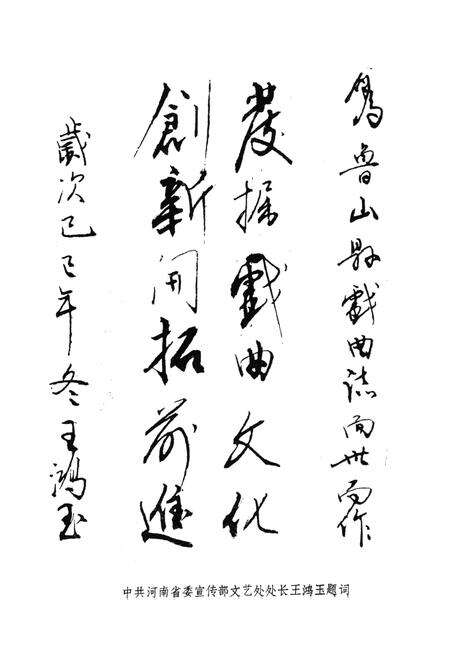 為魯山县戲曲誌面世而作
發掘戲曲文化
創新開拓前進
歲次己巳年冬王鴻玉
中共河南省委宣传部文艺处处长王鸿玉题词